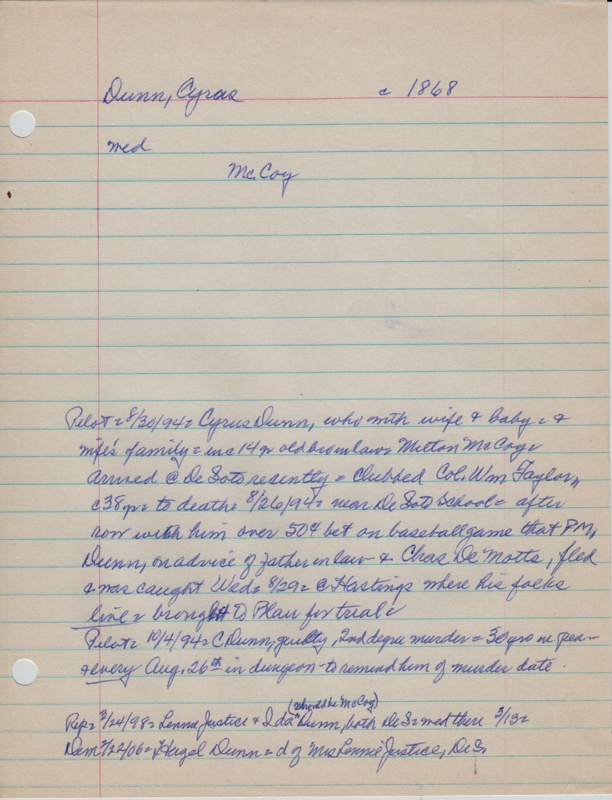 Dunn, Cyrus c 1868
med
McCoy
Pilot = 8/30/94 = Cyrus Dunn, who with wife & baby = &
wife's family = inc 14 yr old bro in law = Milton McCoy =
arrived @ De Soto recently = clubbed Col. Wm Taylor,
c 38 yr = to death = 8/26/94 = near De Soto School = after
row with him over 50¢ bet on baseball game that P.M.
Dunn, on advice of father in law & Chas De Motts, fled
& was caught Wed = 8/29 = @ Hastings where his folks
live = brought to Blair for trial =
Pilot = 10/4/94 = C Dunn, guilty, 2nd degree murder = 30 yrs in pen =
& every Aug. 26th in dungeon to remind him of murder date.
(should be McCoy)
Rep = 3/24/98 = Lenna Justice & Ida "Dunn, both De S = med there 3/13 =
Dem 2/22/06 = Hazel Dunn = d of Mrs Lennie Justice, De S.